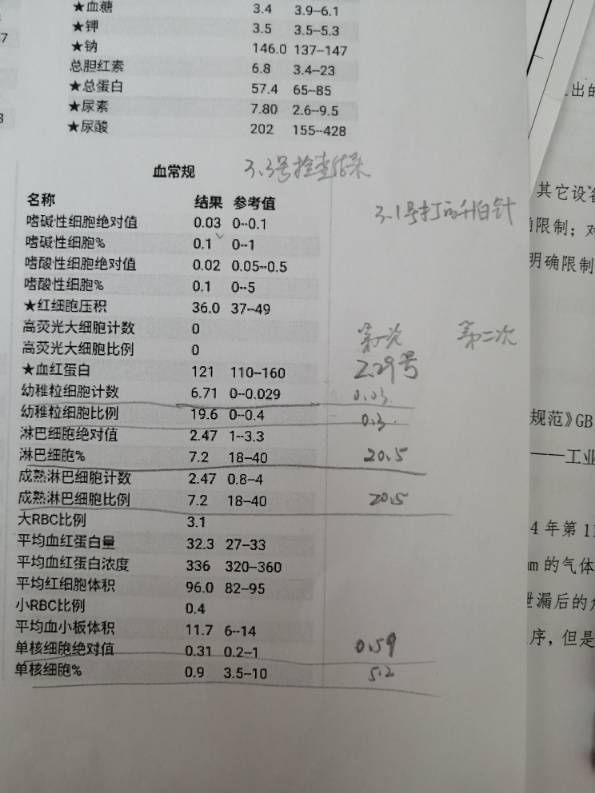 ★血糖 3.4 3.9--6.1
★钾 3.5 3.5--5.3
★钠 146.0 137--147
总胆红素 6.8 3.4--23
★总蛋白 57.4 65--85
★尿素 7.80 2.6--9.5
★尿酸 202 155--428
血常规 3.3号检查结果
名称 结果 参考值
3.1号打的升白针
嗜碱性细胞绝对值 0.03 0--0.1
嗜碱性细胞% 0.1 0--1
嗜酸性细胞绝对值 0.02 0.05--0.5
嗜酸性细胞% 0.1 0--5
★红细胞压积 36.0 37--49
高荧光大细胞计数 0
第一次 第二次
高荧光大细胞比例 0
★血红蛋白 121 110--160 2.29号
幼稚粒细胞计数 6.71 0--0.029 0.03
幼稚粒细胞比例 19.6 0--0.4 0.3
淋巴细胞绝对值 2.47 1--3.3
淋巴细胞% 7.2 18--40 20.5
成熟淋巴细胞计数 2.47 0.8--4
成熟淋巴细胞比例 7.2 18--40 20.5
大RBC比例 3.1
平均血红蛋白量 32.3 27--33
平均血红蛋白浓度 336 320--360
平均红细胞体积 96.0 82--95
小RBC比例 0.4
平均血小板体积 11.7 6--14
单核细胞绝对值 0.31 0.2--1 0.59
单核细胞% 0.9 3.5--10 5.2
出的
其它设备
限制；对
明确限制
规范》GB
——工业
4年第11
am的气体
泄漏后的
序，但是